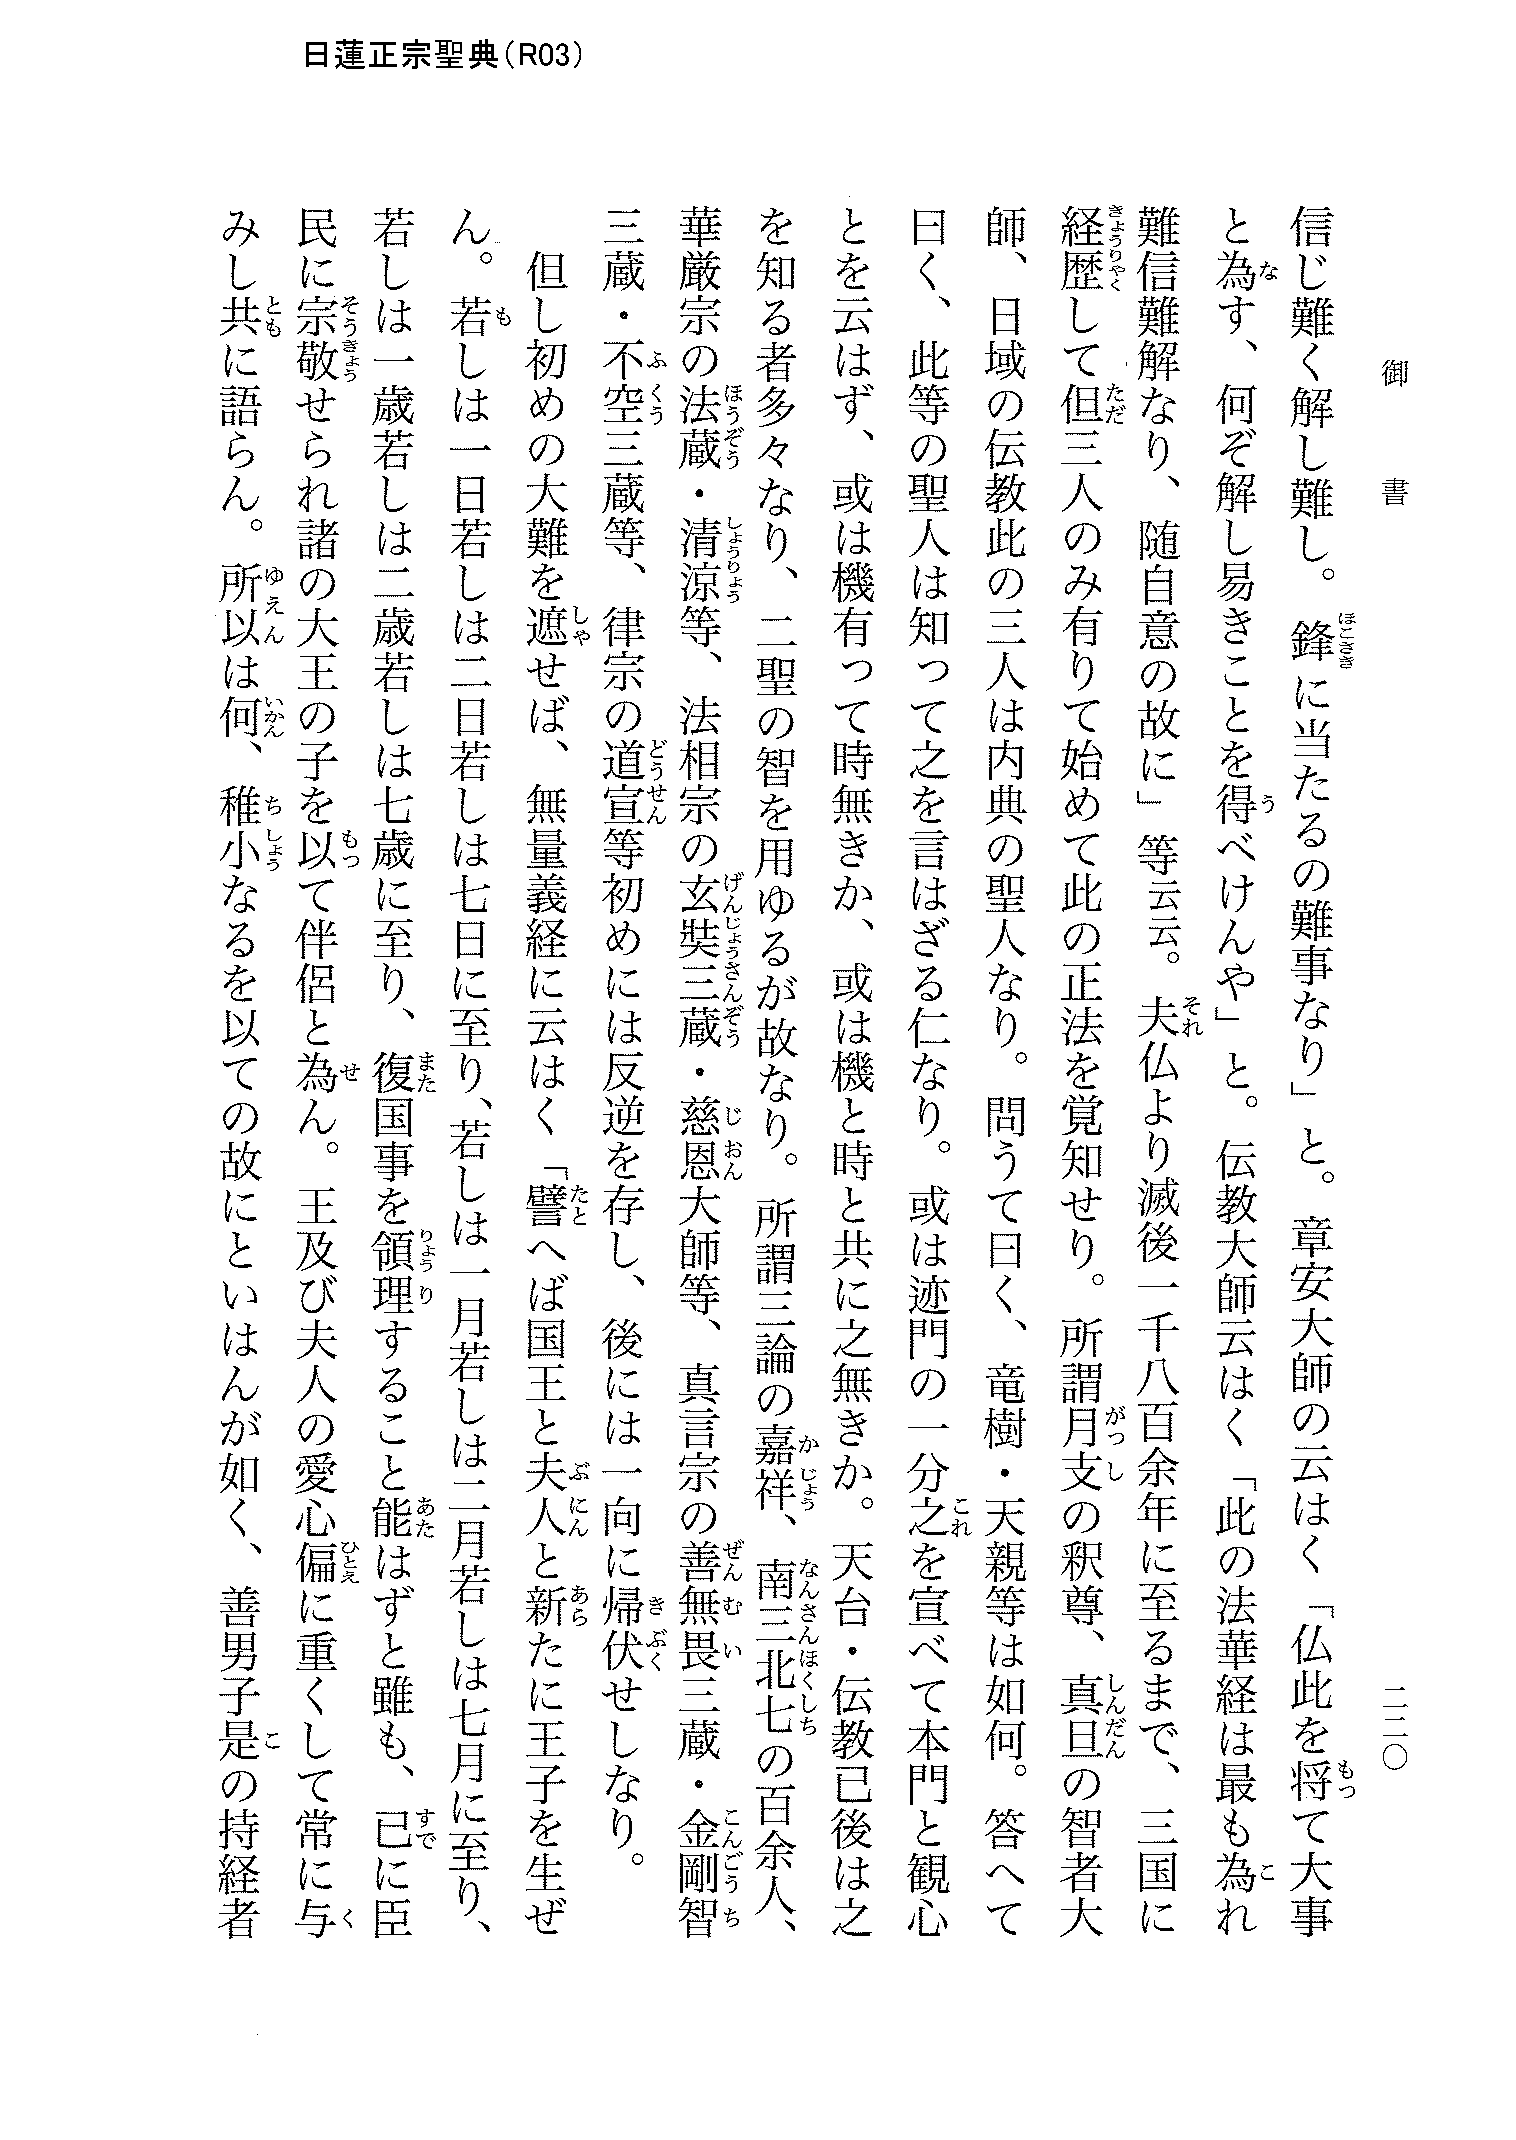 日蓮正宗聖典（R03）
御書
二二〇
信じ難く解し難し。鋒に当たるの難事なり」と。章安大師の云はく「仏此を将て大事
と為す、何ぞ解し易きことを得べけんや」と。伝教大師云はく「此の法華経は最も為れ
難信難解なり、随自意の故に」等云云。夫仏より滅後一千八百余年に至るまで、三国に
経歴して但三人のみ有りて始めて此の正法を覚知せり。所謂月支の釈尊、真旦の智者大
師、日域の伝教此の三人は内典の聖人なり。問うて曰く、竜樹・天親等は如何。答へて
曰く、此等の聖人は知って之を言はざる仁なり。或は迹門の一分之を宣べて本門と観心
とを云はず、或は機有って時無きか、或は機と時と共に之無きか。天台・伝教已後は之
を知る者多々なり、二聖の智を用ゆるが故なり。所謂三論の嘉祥、南三北七の百余人、
華厳宗の法蔵・清涼等、法相宗の玄奘三蔵・慈恩大師等、真言宗の善無畏三蔵・金剛智
三蔵・不空三蔵等、律宗の道宣等初めには反逆を存し、後には一向に帰伏せしなり。
但し初めの大難を遮せば、無量義経に云はく「譬へば国王と夫人と新たに王子を生ぜ
ん。若しは一日若しは二日若しは七日に至り、若しは一月若しは二月若しは七月に至り、
若しは一歳若しは二歳若しは七歳に至り、復国事を領理すること能はずと雖も、已に臣
民に宗敬せられ諸の大王の子を以て伴侶と為ん。王及び夫人の愛心偏に重くして常に与
みし共に語らん。所以は何、稚小なるを以ての故にといはんが如く、善男子是の持経者